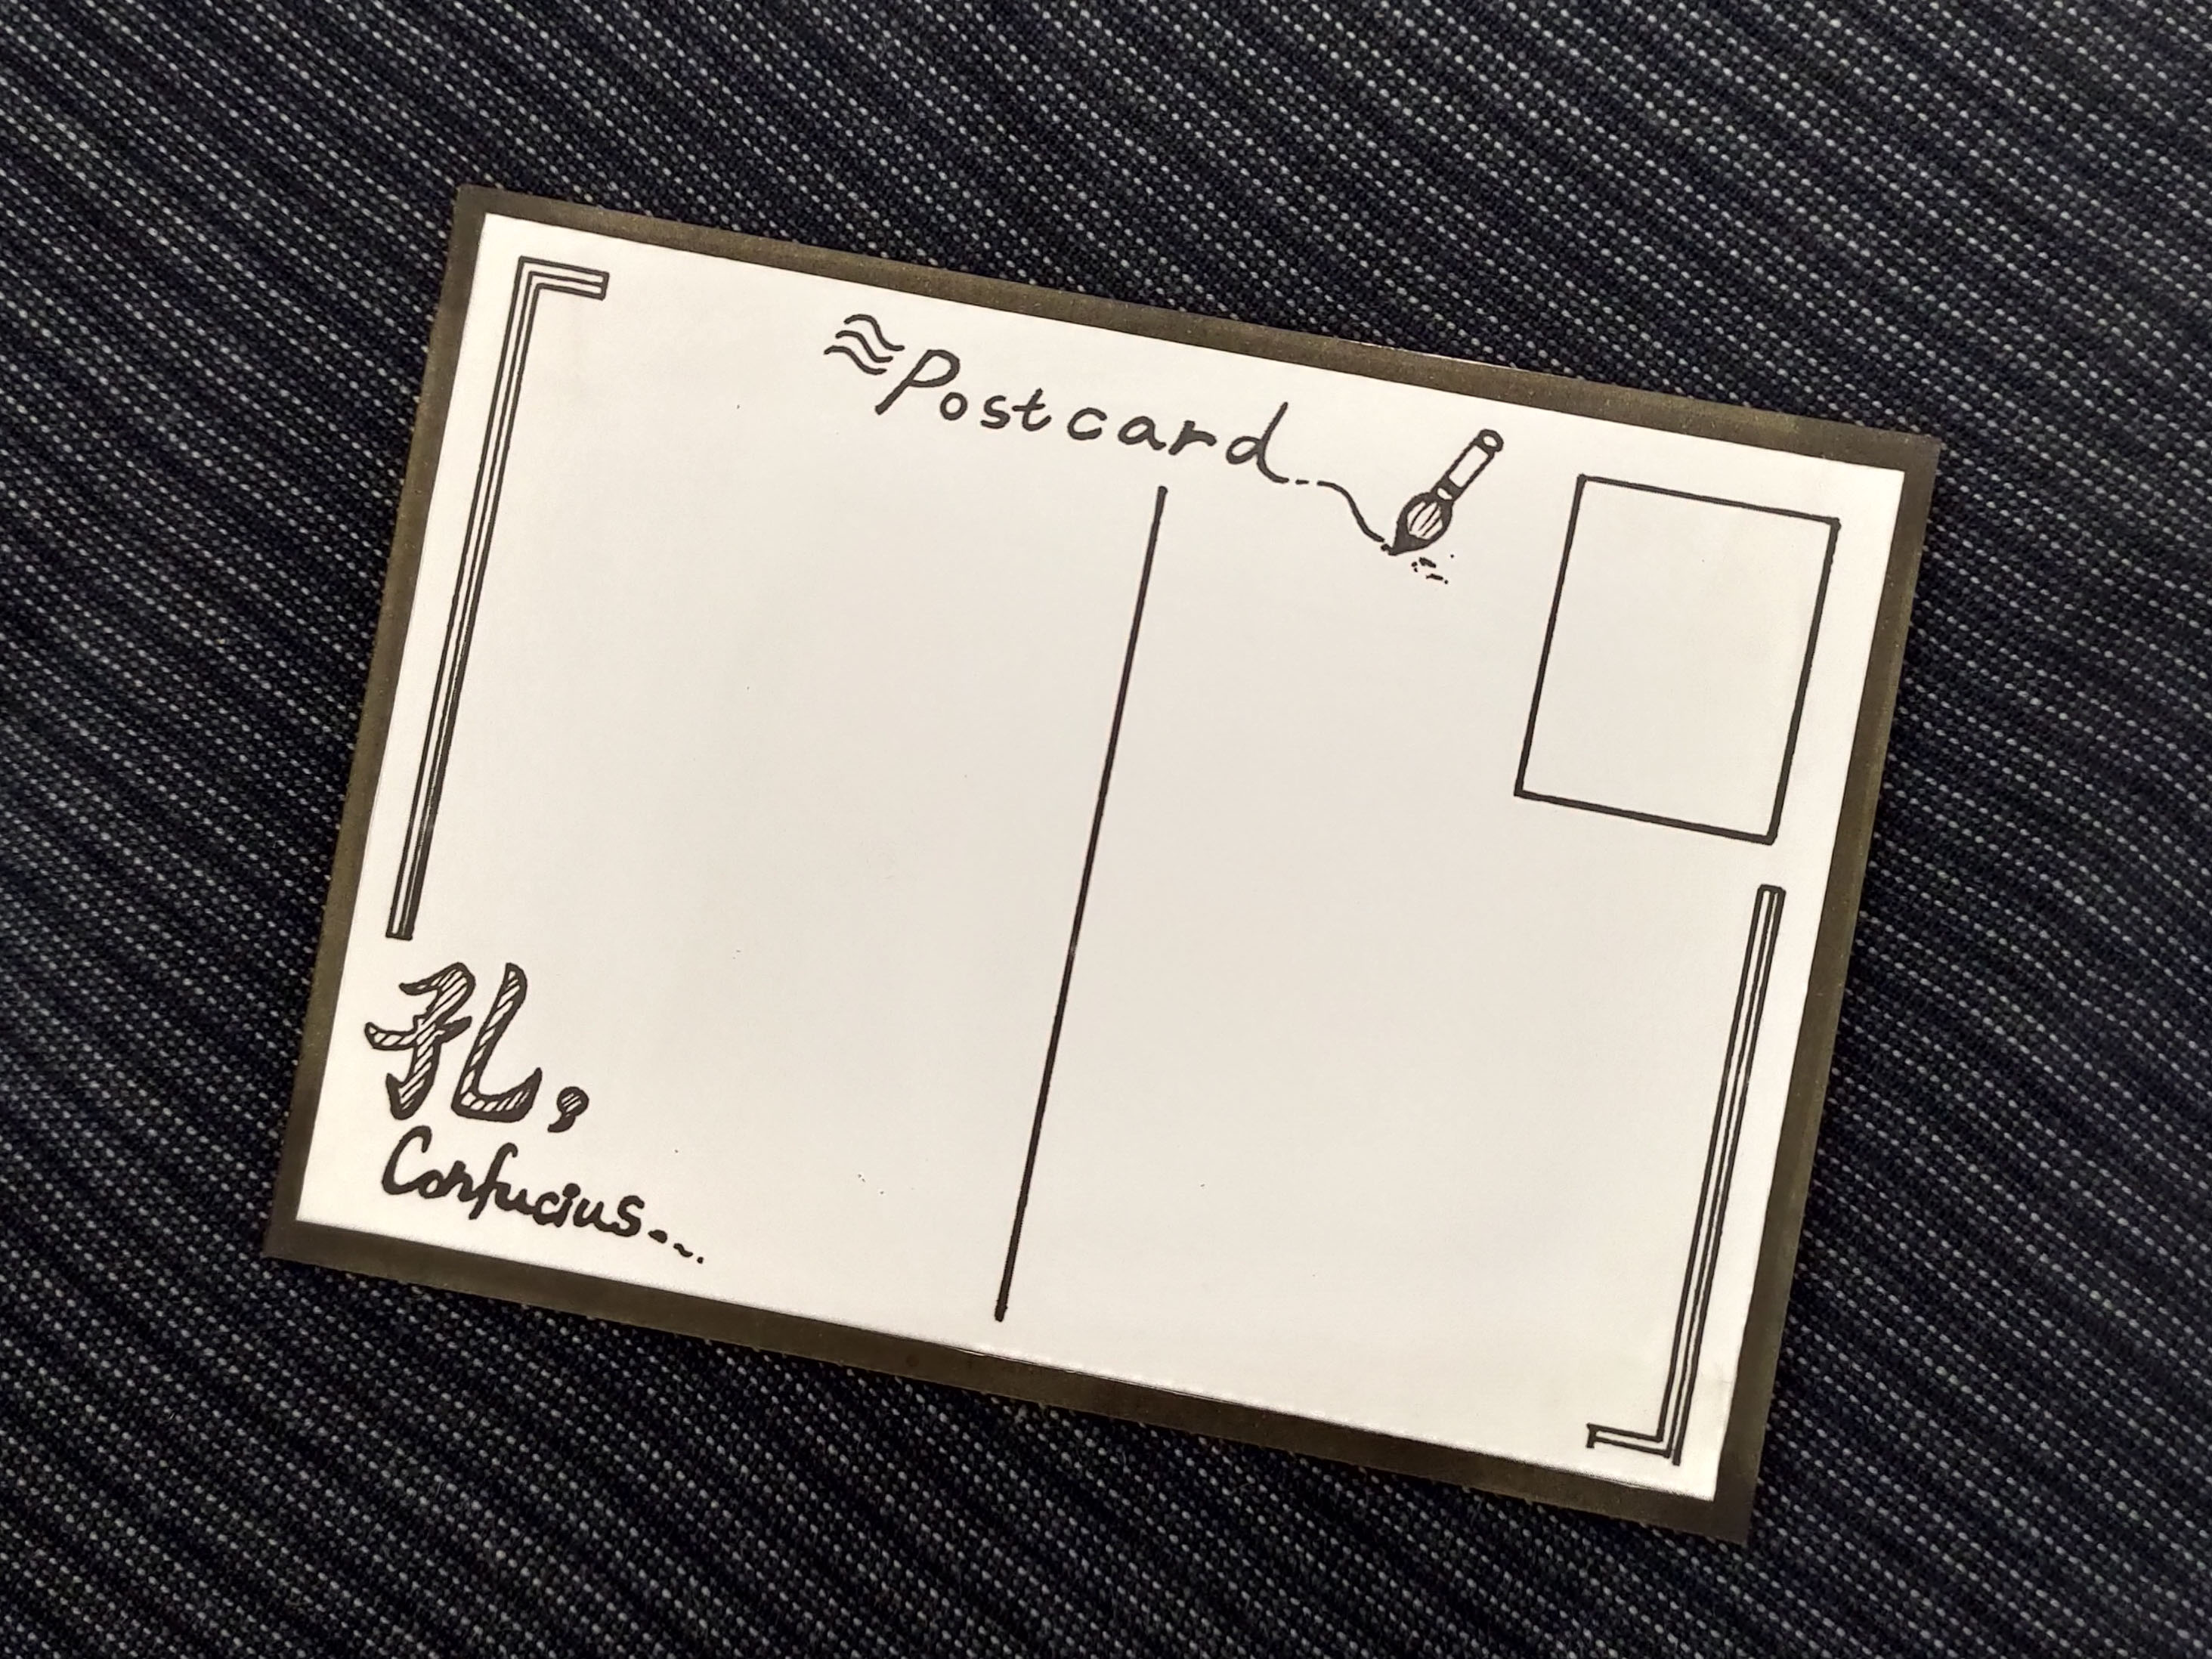 Postcard
孔,
Confucius...